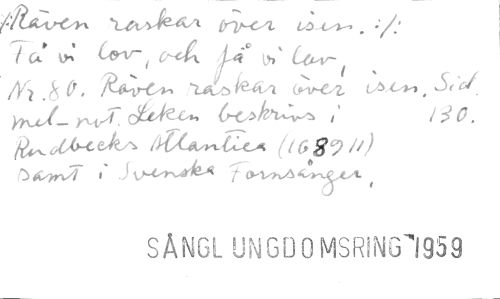 /:Räven raskar över isen. :/:
Få vi lov, och få vi lov,
Nr. 80. Räven raskar över isen. Sid.
mel-not. Leken beskrivs i 130.
Rudbecks Atlantica (1689 II)
samt i Svenska Fornsånger.
SÅNGL UNGDOMSRING 1959